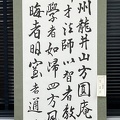 州龍井山方圓庵
才法師以智者教
學者如歸四方風
晦者明窒者通